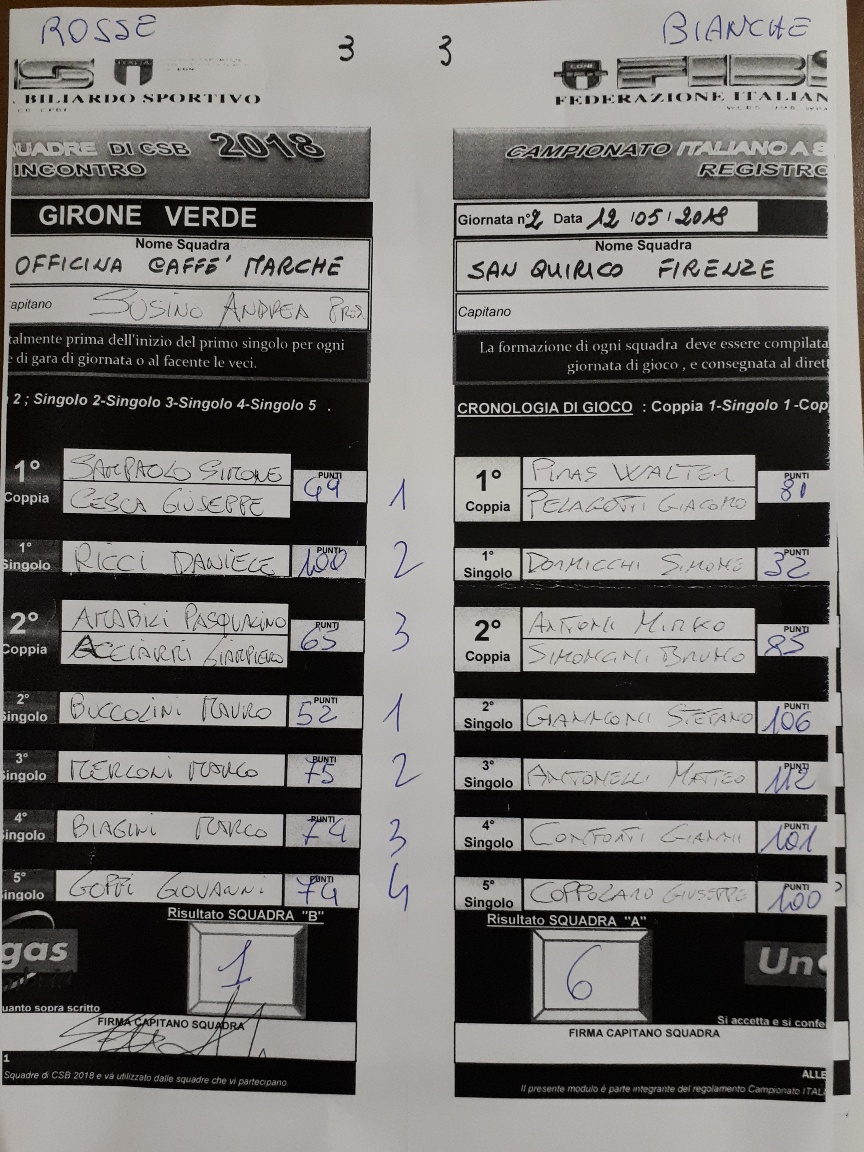 ROSSE
3 3
BIANCHE
ITALIA
. BILIARDO SPORTIVO
CONI FIBS
FEDERAZIONE ITALIAN
UADRE DI CSB 2018
INCONTRO
GIRONE VERDE
Nome Squadra
OFFICINA CAFFE' MARCHE
apitano SUSINO ANDREA
talmente prima dell'inizio del primo singolo per ogni
e di gara di giornata o al facente le veci.
2 ; Singolo 2-Singolo 3-Singolo 4-Singolo 5 .
1° Coppia SAMPAOLO SIMONE
CESCA GIUSEPPE
PUNTI
1
1° Singolo RICCI DANIELE PUNTI 100 2
2° Coppia AMABILI PASQUALINO
ACCIARRI GIAMPIERO
PUNTI 65
3
2° Singolo BUCCOLINI MAURO PUNTI 52 1
3° Singolo MERLONI MARCO PUNTI 75 2
4° Singolo BIAGINI MARCO PUNTI 74 3
5° Singolo GOFFI GIOVANNI PUNTI 74 4
Risultato SQUADRA "B"
gas
1
uanto sopra scritto
FIRMA CAPITANO SQUADRA
1
Squadre di CSB 2018 e và utilizzato dalle squadre che vi partecipano
CAMPIONATO ITALIANO A S
REGISTRO
Giornata n° 2 Data 12 /05 / 2018
Nome Squadra
SAN QUIRICO FIRENZE
Capitano
La formazione di ogni squadra deve essere compilata
giornata di gioco , e consegnata al dirett
CRONOLOGIA DI GIOCO : Coppia 1-Singolo 1 -Cop
1° Coppia PIRAS WALTER
PELAGOTTI GIACOMO
PUNTI 81
1° Singolo DORMICCHI SIMONE PUNTI 32
2° Coppia ANTONI MIRKO
BRUNO
PUNTI 85
2° Singolo GIANNONI STEFANO PUNTI 106
3° Singolo ANTONELLI MATTEO PUNTI 112
4° Singolo CONFORTI GIANNI PUNTI 101
5° Singolo COPPOLARO GIUSEPPE PUNTI 100
Risultato SQUADRA "A"
6
Un
Si accetta e si confe
FIRMA CAPITANO SQUADRA
ALLE
Il presente modulo è parte integrante del regolamento Campionato ITAL